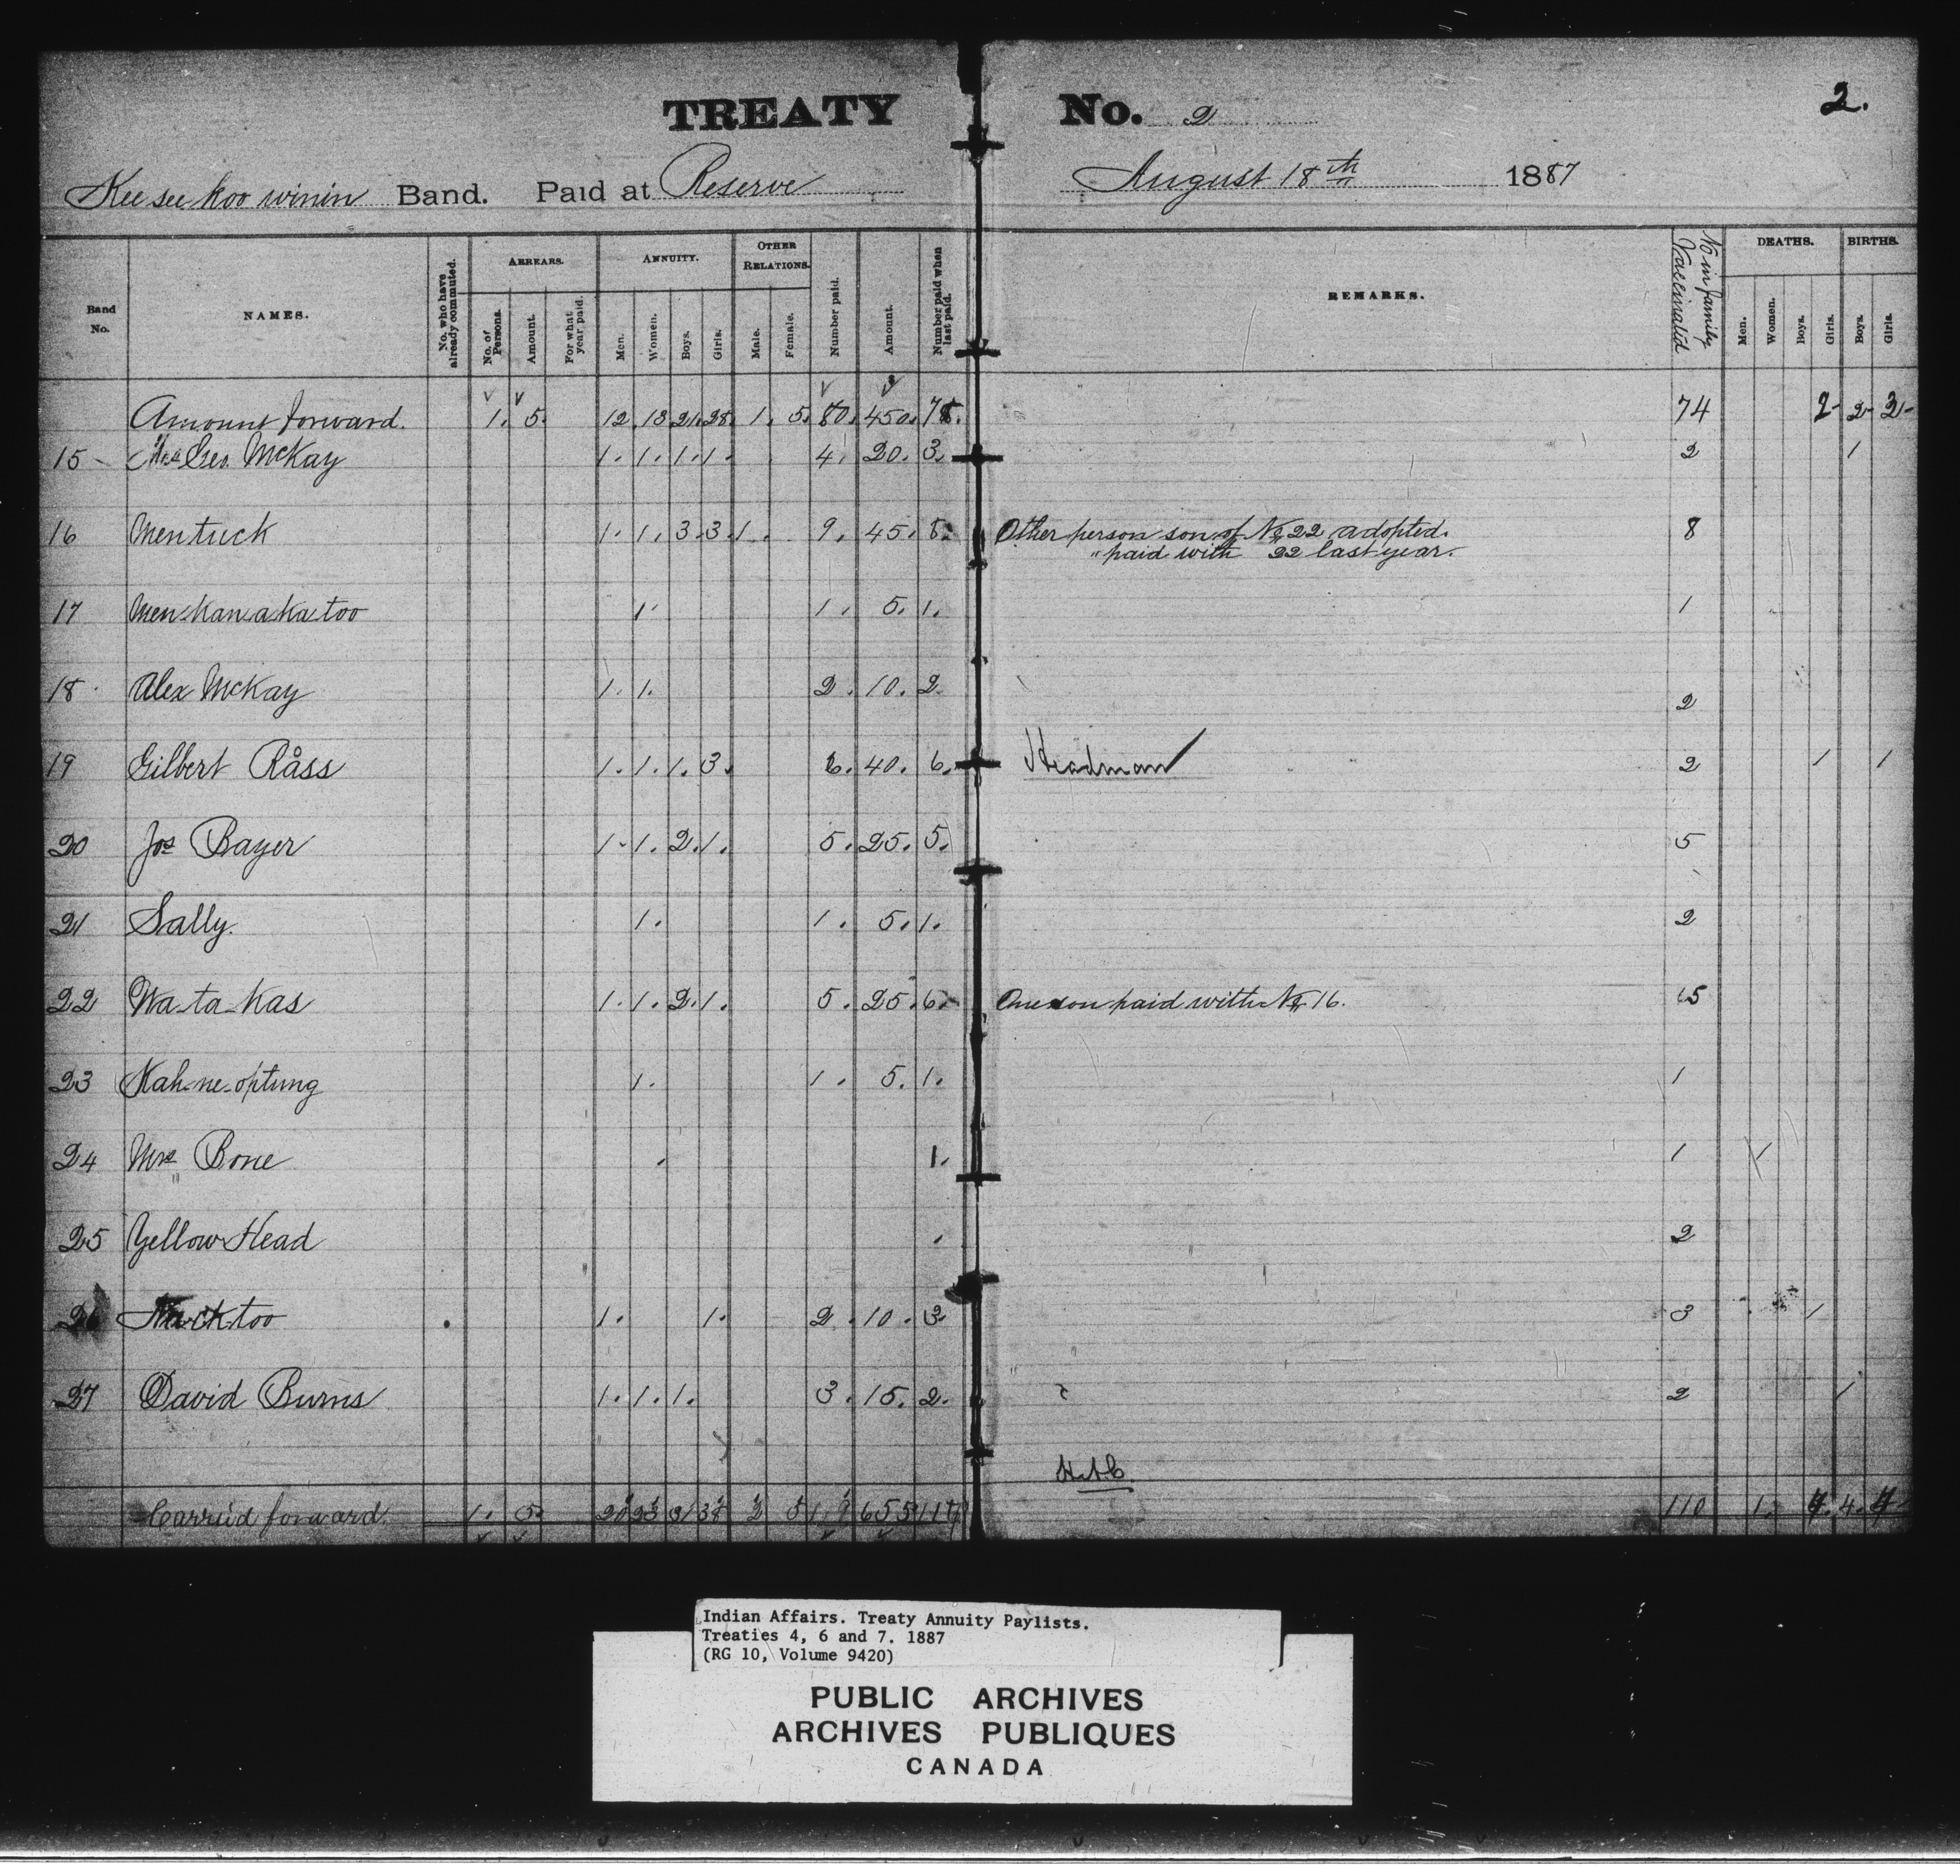 TREATY No. 2
2.
Kee see koo winin Band. Paid at Reserve August 18th 1887
Band No. NAMES. No. who have already commuted. ARREARS. No. of Persons. Amount. For what year paid. ANNUITY. Men. Women. Boys. Girls. OTHER RELATIONS. Male. Female. Number paid. Amount. Number paid when last paid. REMARKS. No in family Vaccinated DEATHS. Men. Women. Boys. Girls. BIRTHS. Boys. Girls.
Amount forward. 1. 5. 12. 13 21. 28. 1. 5. 80. 450. 78. 74 2 2 2
15 Geo. McKay 1. 1. 1. 1. 4. 20. 3. 2 1
16 Mentuck 1. 1. 3. 3. 1. 9. 45. 8. Other person son of No 22 adopted. 8
" paid with " 22 last year.
17 Men Kan a Ka too 1. 1. 5. 1. 1
18. Alex McKay 1. 1. 2. 10. 2. 2
19 Gilbert Ross 1. 1. 1. 3. 6. 40. 6. Headman 2 1 1
20 Jos Bayer 1. 1. 2. 1. 5. 25. 5. 5
21 Sally. 1. 1. 5. 1. 2
22 Wa-ta-Kas 1. 1. 2. 1. 5. 25. 6. One son paid with No 16. 5
23 Kah-ne-optung 1. 1. 5. 1. 1
24 Mrs Bone 1. 1 1
25 Yellow Head 2
26 Nacktoo 1. 1. 2. 10. 3 3 1
27 David Burns 1. 1. 1. 3. 15. 2. 2 1
Carried forward. 1. 5. 20 23 31 38 2 5 119 655 117 110 1. 4. 4. 4
Indian Affairs. Treaty Annuity Paylists.
Treaties 4, 6 and 7. 1887
(RG 10, Volume 9420)
PUBLIC ARCHIVES
ARCHIVES PUBLIQUES
CANADA